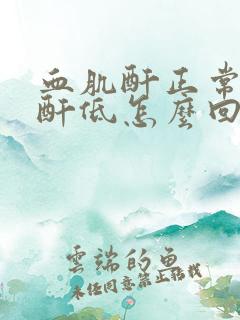 血肌酐正常
酐低怎麼回
雲端的魚
未经同意禁止搭载